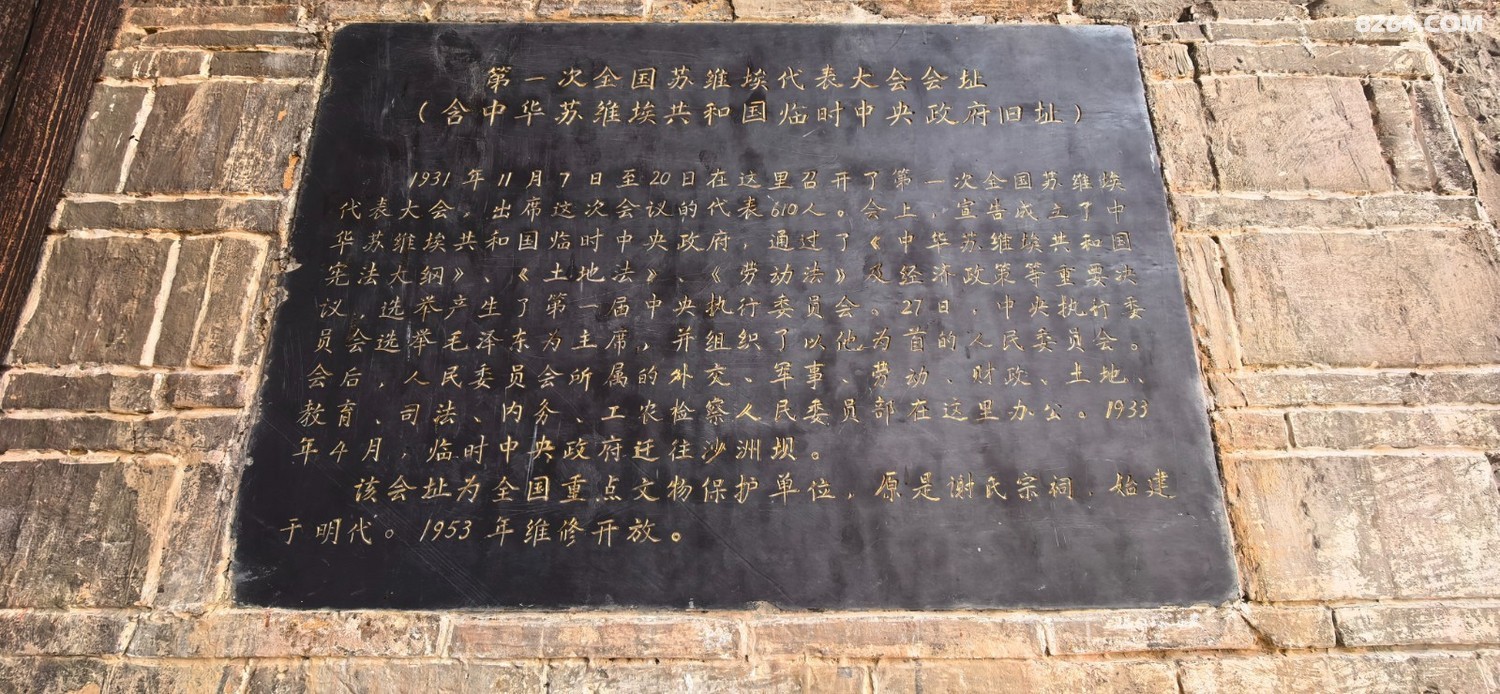 8264.COM
第一次全国苏维埃代表大会会址
（含中华苏维埃共和国临时中央政府旧址）
1931年11月7日至20日在这里召开了第一次全国苏维埃
代表大会，出席这次会议的代表610人。会上，宣告成立了中
华苏维埃共和国临时中央政府，通过了《中华苏维埃共和国
宪法大纲》、《土地法》、《劳动法》及经济政策等重要决
议，选举产生了第一届中央执行委员会。27日，中央执行委
员会选举毛泽东为主席，并组织了以他为首的人民委员会。
会后，人民委员会所属的外交、军事、劳动、财政、土地、
教育、司法、内务、工农检察人民委员部在这里办公。1933
年4月，临时中央政府迁往沙洲坝。
该会址为全国重点文物保护单位，原是谢氏宗祠，始建
于明代。1953年维修开放。